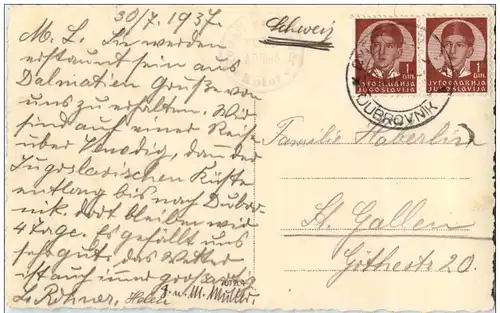 30/7. 1937.
M. L. Sie werden
erstaunt sein aus
Dalmatien Grüße von
uns zu erhalten. Wir
sind auf einer Reise
über Venedig, dann der
Jugoslavischen Küste
entlang bis nach Dubrov-
nik. dort bleiben wir
4 Tage. Es gefällt uns
sehr gut, das Wetter
ist auch immer großartig
L. Rohner,
J. u. M. Müller.
Schweiz
Kotor
1 DIN. 1 DIN.
ЈУГОСЛАВИЈА ЈУГОСЛАВИЈА
JUGOSLAVIJA JUGOSLAVIJA
DUBROVNIK
Familie Haberlin
St. Gallen
Göthestr 20.